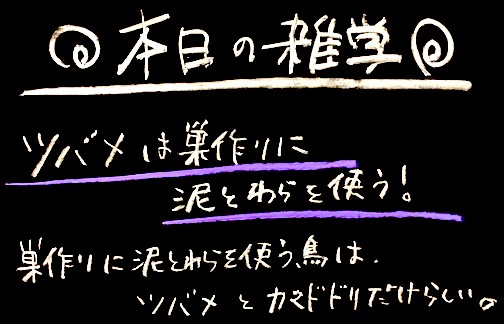 本日の雑学
ツバメは巣作りに
泥とわらを使う!
巣作りに泥とわらを使う鳥は、
ツバメとカマドドリだけらしい。